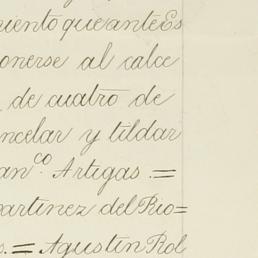 miento que ante Es
ponerse al calce
de cuatro de
ncelar y tildar
an.co Artigas.=
artinez del Rio=
s.= Agustin Rol